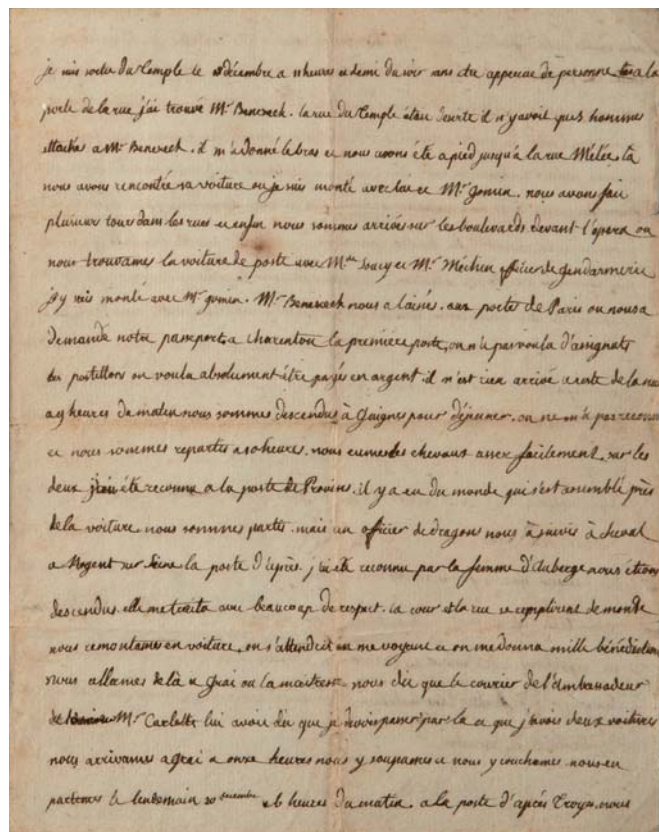 je suis sortie du temple le 18 décembre a 11 heures et demi du soir sans etre apperçue de personne a la
porte de la rue j'ai trouvé Mr. Benezech. la rue du temple étoit deserte il n'y avoit que hommes
attachés a Mr. Benezech. il m'a donné le bras et nous avons été a pied jusqu'a la rue Mêlée. là
nous avons rencontrée sa voiture ou je suis monté avec lui et Mr. gomin. nous avons fait
plusieurs tours dans les rues et enfin nous sommes arrivés sur les boulevards devant l'opera ou
nous trouvames la voiture de poste avec Mde. soucy et Mr. Méchin officier de gendarmerie
j'y suis monté avec Mr. gomin. Mr. Benezech nous a laissés. aux portes de Paris on nous a
demandé notre passeport, a charenton la première poste, on n'a pas voulu d'assignats
les postillons on voulu absolument être payés en argent il n'est rien arrivé le reste de la nuit
a 9 heures du matin nous sommes descendus à guignes pour déjeuner. on ne m'a pas reconnu
et nous sommes repartis a 10 heures. nous eumes des chevaux assez facilement. sur les
deux j'ai été reconnu a la poste de Provins. il y a eu du monde qui s'est assemblé près
de la voiture. nous sommes partis. mais un officier de dragons nous à suivis à cheval
a Nogent sur Seine la poste d'après. j'ai été reconnu par la femme d'auberge nous étions
descendus. elle me traita avec beaucoup de respect. la cour et la rue se remplirent de monde
nous remontames en voiture, on s'attendrit en me voyant et on me donna mille bénédictions
nous allames de là a grai ou la maitresse nous dit que le courier de l'ambassadeur
de Mr. Carletti lui avoit dit que je devois passer par la et que j'avois deux voitures
nous arrivames a grai a onze heures nous y soupames et nous y couchames. nous en
partimes le lendemain 20 decembre a 6 heures du matin. a la poste d'après Troyes. nous